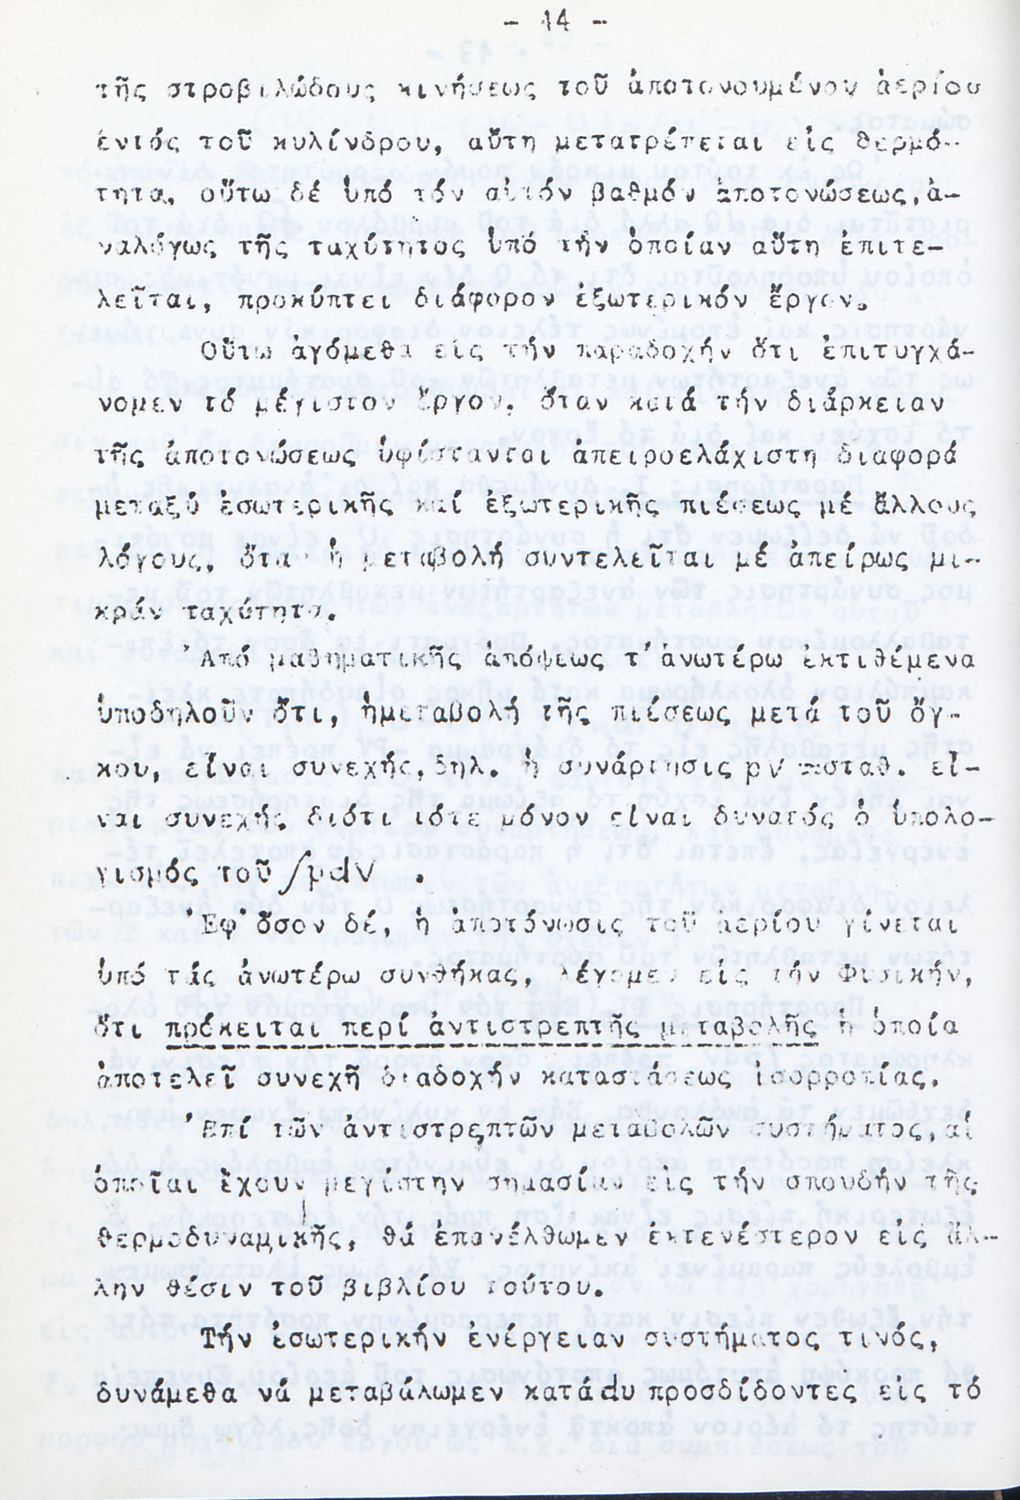 - 14 -
τῆς στροβιλώδους κινήσεως τοῦ ἀποτονουμένου ἀερίου
ἐντός τοῦ κυλίνδρου, αὕτη μετατρέπεται εἰς θερμό-
τητα, οὕτω δέ ὑπό τόν αὐτόν βαθμόν ἀποτονώσεως, ἀ-
ναλόγως τῆς ταχύτητος ὑπό τήν ὁποίαν αὕτη ἐπιτε-
λεῖται, προκύπτει διάφορον ἐξωτερικόν ἔργον.
Οὕτω ἀγόμεθα εἰς τήν παραδοχήν ὅτι ἐπιτυγχά-
νομεν τό μέγιστον ἔργον, ὅταν κατά τήν διάρκειαν
τῆς ἀποτονώσεως ὑφίστανται ἀπειροελάχιστη διαφορά
μεταξύ ἐσωτερικῆς καί ἐξωτερικῆς πιέσεως μέ ἄλλους
λόγους, ὅταν ἡ μεταβολή συντελεῖται μέ ἀπείρως μι-
κράν ταχύτητα.
Ἀπό μαθηματικῆς ἀπόψεως τ' ἀνωτέρω ἐκτιθέμενα
ὑποδηλοῦν ὅτι, ἡμεταβολή τῆς πιέσεως μετά τοῦ ὄγ-
κου, εἶναι συνεχής, δηλ. ἡ συνάρτησις pV =σταθ. εἶ-
ναι συνεχής διότι τότε μόνον εἶναι δυνατός ὁ ὑπολο-
γισμός τοῦ ∫pdV .
Ἐφ' ὅσον δέ, ἡ ἀποτόνωσις τοῦ ἀερίου γίνεται
ὑπό τάς ἀνωτέρω συνθήκας, λέγομεν εἰς τήν Φυσικήν,
ὅτι πρόκειται περί ἀντιστρεπτῆς μεταβολῆς ἡ ὁποία
ἀποτελεῖ συνεχῆ διαδοχήν καταστάσεως ἰσορροπίας.
Ἐπί τῶν ἀντιστρεπτῶν μεταβολῶν συστήματος, αἱ
ὁποῖαι ἔχουν μεγίστην σημασίαν εἰς τήν σπουδήν τῆς
θερμοδυναμικῆς, θά ἐπανέλθωμεν ἐκτενέστερον εἰς ἄλ-
λην θέσιν τοῦ βιβλίου τούτου.
Τήν ἐσωτερικήν ἐνέργειαν συστήματος τινός,
δυνάμεθα νά μεταβάλωμεν κατά du προσδίδοντες εἰς τό